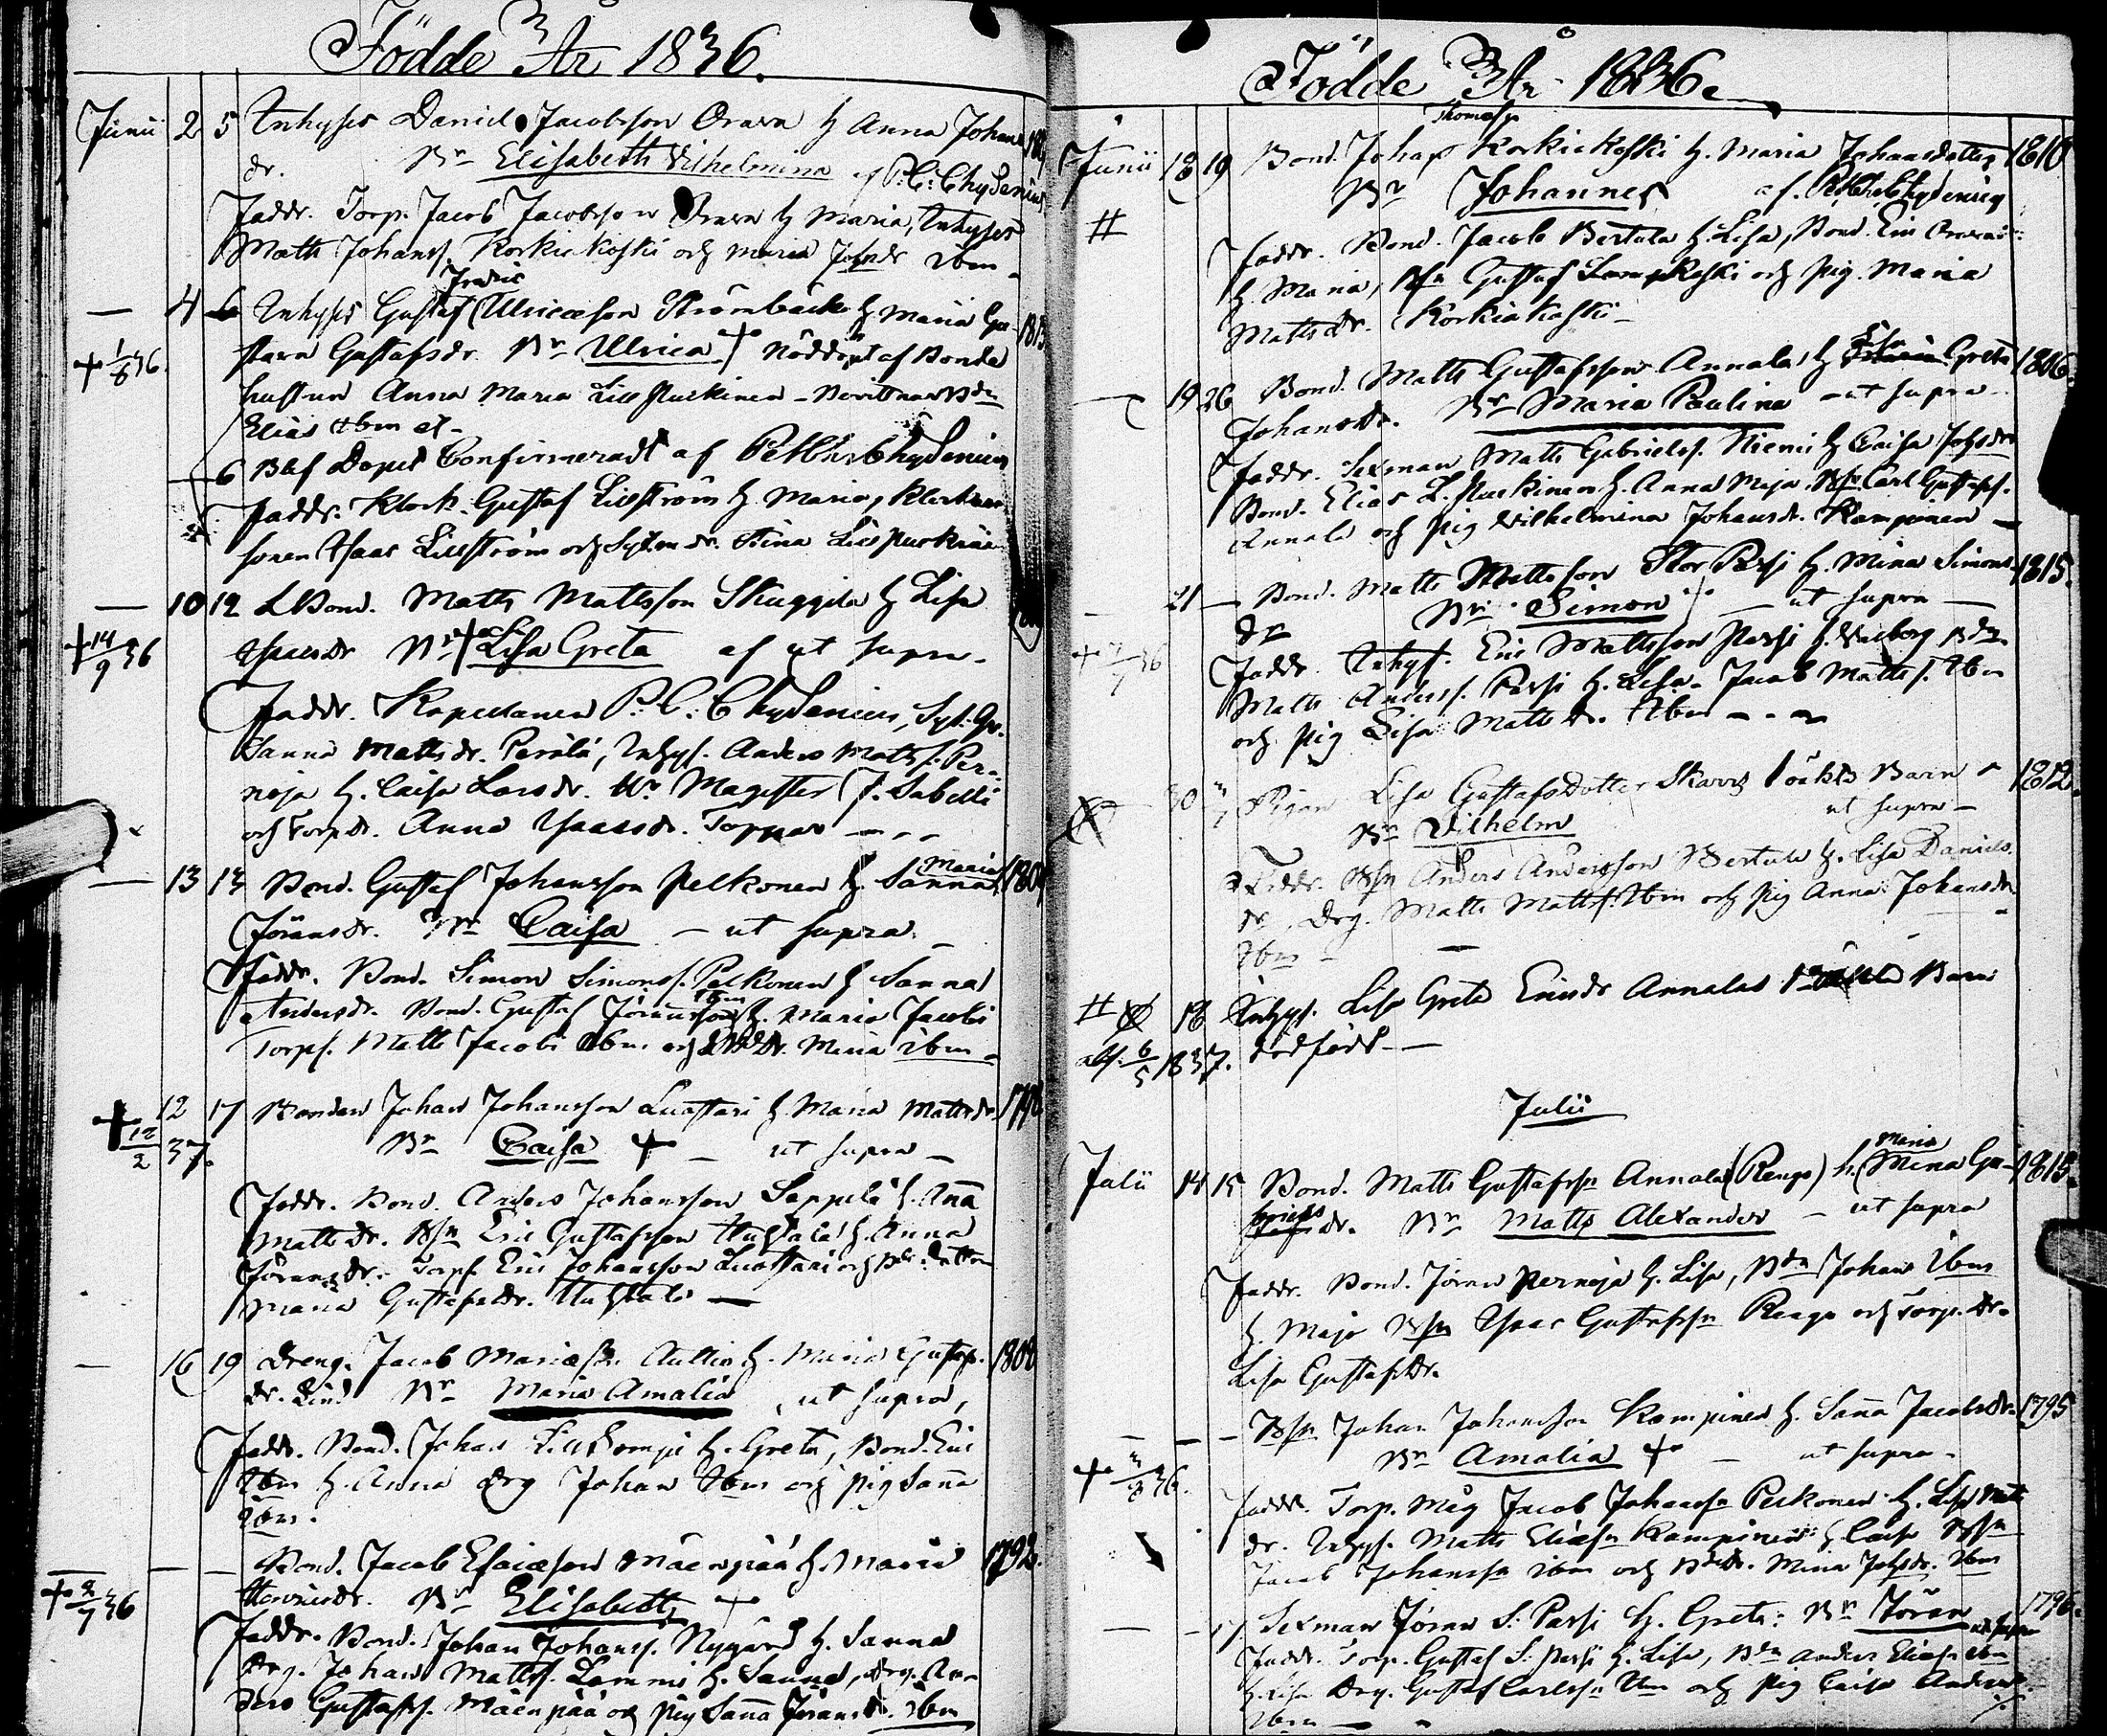 Födde År 1836.
Junii 2 5 Inhyses Daniel Jacobsson Orava h Anna Johans
dr. Bn Elisabeth Vilhelmina af P. C. Chydenius
Faddr. Torp. Jacob Jacobsson Orava h Maria, Inhyses
Matts Johanss. Korkiakoski och Maria Johsdr ibm
Fredric
— 4 6 Inhyses Gustaf Ulricæson Strömbäck h Maria Gu- 1813
stava Gustafsdr. Bn Ulrica + Nöddöpt af Bonde
hustrun Anna Maria Lill Purkinen
Elias ibm et-
6 Blef Döpet Confirmeradt af P. C. Chydenius
Faddr. Klock. Gustaf Lillström h. Maria, Klockare
sonen Isaac Lillström och Stina Lill Purkine
— 10 12 LBond. Matts Mattsson Skuggila h Lisa
+ 14/9 36 Isacsdr Bn + Lisa Greta af ut supra.
Faddr. Kapellanen P. C. Chydenius,
Sanna Mattsdr. Perälä, Inhys. Anders Mattss. Per-
noja h. Caisa Larsdr. Hr Magister J. Sabelli
och Torpdr. Anna Isaacsdr. Toppar
Maria
— 13 13 Bond. Gustaf Johansson Pelkonen h. Sanna
Jöransdr. Bn Caisa — ut supra.
Faddr. Bond. Simon Simonss. Pelkonen h Sanna
Andersdr. Bond. Gustaf Jöransson h. Maria Jacobs
Torps. Matts Jacobs ibm och Maria ibm
12 17 Bonden Johan Johansson Luastari h Maria Mattsdr
+ 12/2 37. Bn Caisa + — ut supra —
Faddr. Bond. Anders Johansson Seppelä h. Anna
Mattsdr. Bsn Eric Gustafsson Huhtala h. Anna
Jöransdr. Torps. Eric Johansson Luastari och
Maria Gustafsdr. Huhtala —
— 16 19 Dreng. Jacob Mariæsn. Aultio h. Maria Gustafs. 1808
dr. Lind Bn Maria Amalia ut supra,
Faddr. Bond. Johan Lill Somppi h. Greta, Bond. Eric
Ibm h. Anna Drg Johan Ibm och pig Sanna
Ibm.
— — Bond. Jacob Esaiæson Mäenpää h. Maria 1792.
Henricsdr. Bn Elisabeth +
Faddr. Bond. Johan Johanss. Nygård h. Sanna
Drg. Johan Mattss. Lammi h. Sanna, Drg. An-
ders Gustafss. Mäenpää och pig Sanna Jöransdr. ibm
Födde År 1836.
Thomass
Junii 18 19 Bond. Johan Korkiakoski h. Maria Johansdotter 1810
# Bn Johannes af. P. C. Chydenius
Faddr. Bond. Jacob Bertula h. Lisa, Bond. Eric Orava
h. Maria, Bsn Gustaf Lampkoski och pig. Maria
Mattsdr. Korkiakoski —
— 19 26 Bond. Matts Gustafsson Annala h Greta 1806.
Johansdr. Bn Maria Paulina — ut supra
Faddr. Sexman Matts Gabrielss. Niemi h Caisa Johsdr
Bond. Elias L. Purkinen h. Anna Maja. Bsn Carl Gustafss.
Annala och pig Vilhelmina Johansdr. Kampinen —
— 21 — Bond. Matts Mattsson Stor Passi h. Mina Simons 1815.
dr Bn Simon — ut supra —
Faddr. Inhys. Eric Mattsson Passi h. Valborg
Matts Anderss. Passi h. Lisa. Jacob Mattss. Ibm
och pig Lisa Mattsdr. Ibm
30 Pigan Lisa Gustafsdotter Skavas oäkta Barn 1812.
Bn Vilhelm ut supra —
Faddr. Bsn Anders Andersson Bertula h. Lisa Daniels
dr, Drg. Matts Mattss. Ibm och pig Anna Johansdr
Ibm —
# 18 Inhys. Lisa Greta Ericsdr Annala Barn
6/5 1837. dödfödt —
Julii
Maria
Julii 14 15 Bond. Matts Gustafsson Annala (Rengo) h. Mina Ga- 1815.
briels dr. Bn Matts Alexander — ut supra
Faddr. Bond. Jöran Pernoja h. Lisa, Bdn Johan Ibm
h. Maja Bsn Isaac Gustafsson Rengo och Torp. dr.
Lisa Gustafsdr.
— — Bsn Johan Johansson Kampinen h. Sanna Jacobsdr. 1795
Bn Amalia + — ut supra —
Faddr. Torp. Måg Jacob Johansson Pelkonen h. Lisa Matts
dr. Inhys. Matts Eliæsn Kampinen h Caisa Bsn
Jacob Johanssn ibm och Mina Johsdr. Ibm
— — 17 Sexman Jöran S. Passi h. Greta: Bn Jöran ut supra 1796.
Faddr. Torp. Gustaf S. Passi h. Lisa, Bdn Anders Eliæsn ibm
h. Lisa Drg. Gustaf Carlssn Ibm och pig Caisa Andersdr
Ibm —